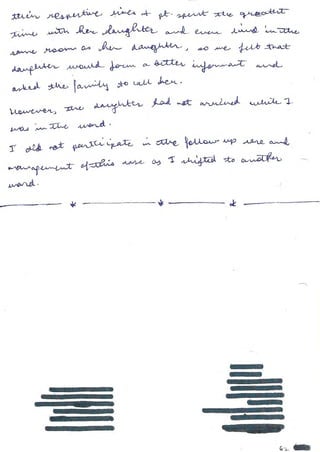 their respective lives + pt. spent the greatest
time with her daughter and even lived in the
same room as her daughter, so we felt that
daughter would form a better informant and
asked the family to call her.
However, the daughter had not arrived while I
was in the ward.
I did not participate in the follow up care and
management of this case as I shifted to another
ward.
62